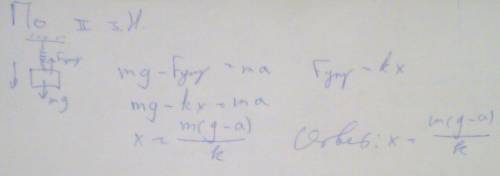 По II з.Н.
Fупр
mg
mg - Fупр = ma Fупр = kx
mg - kx = ma
x = m(g-a)/k Ответ: x = m(g-a)/k